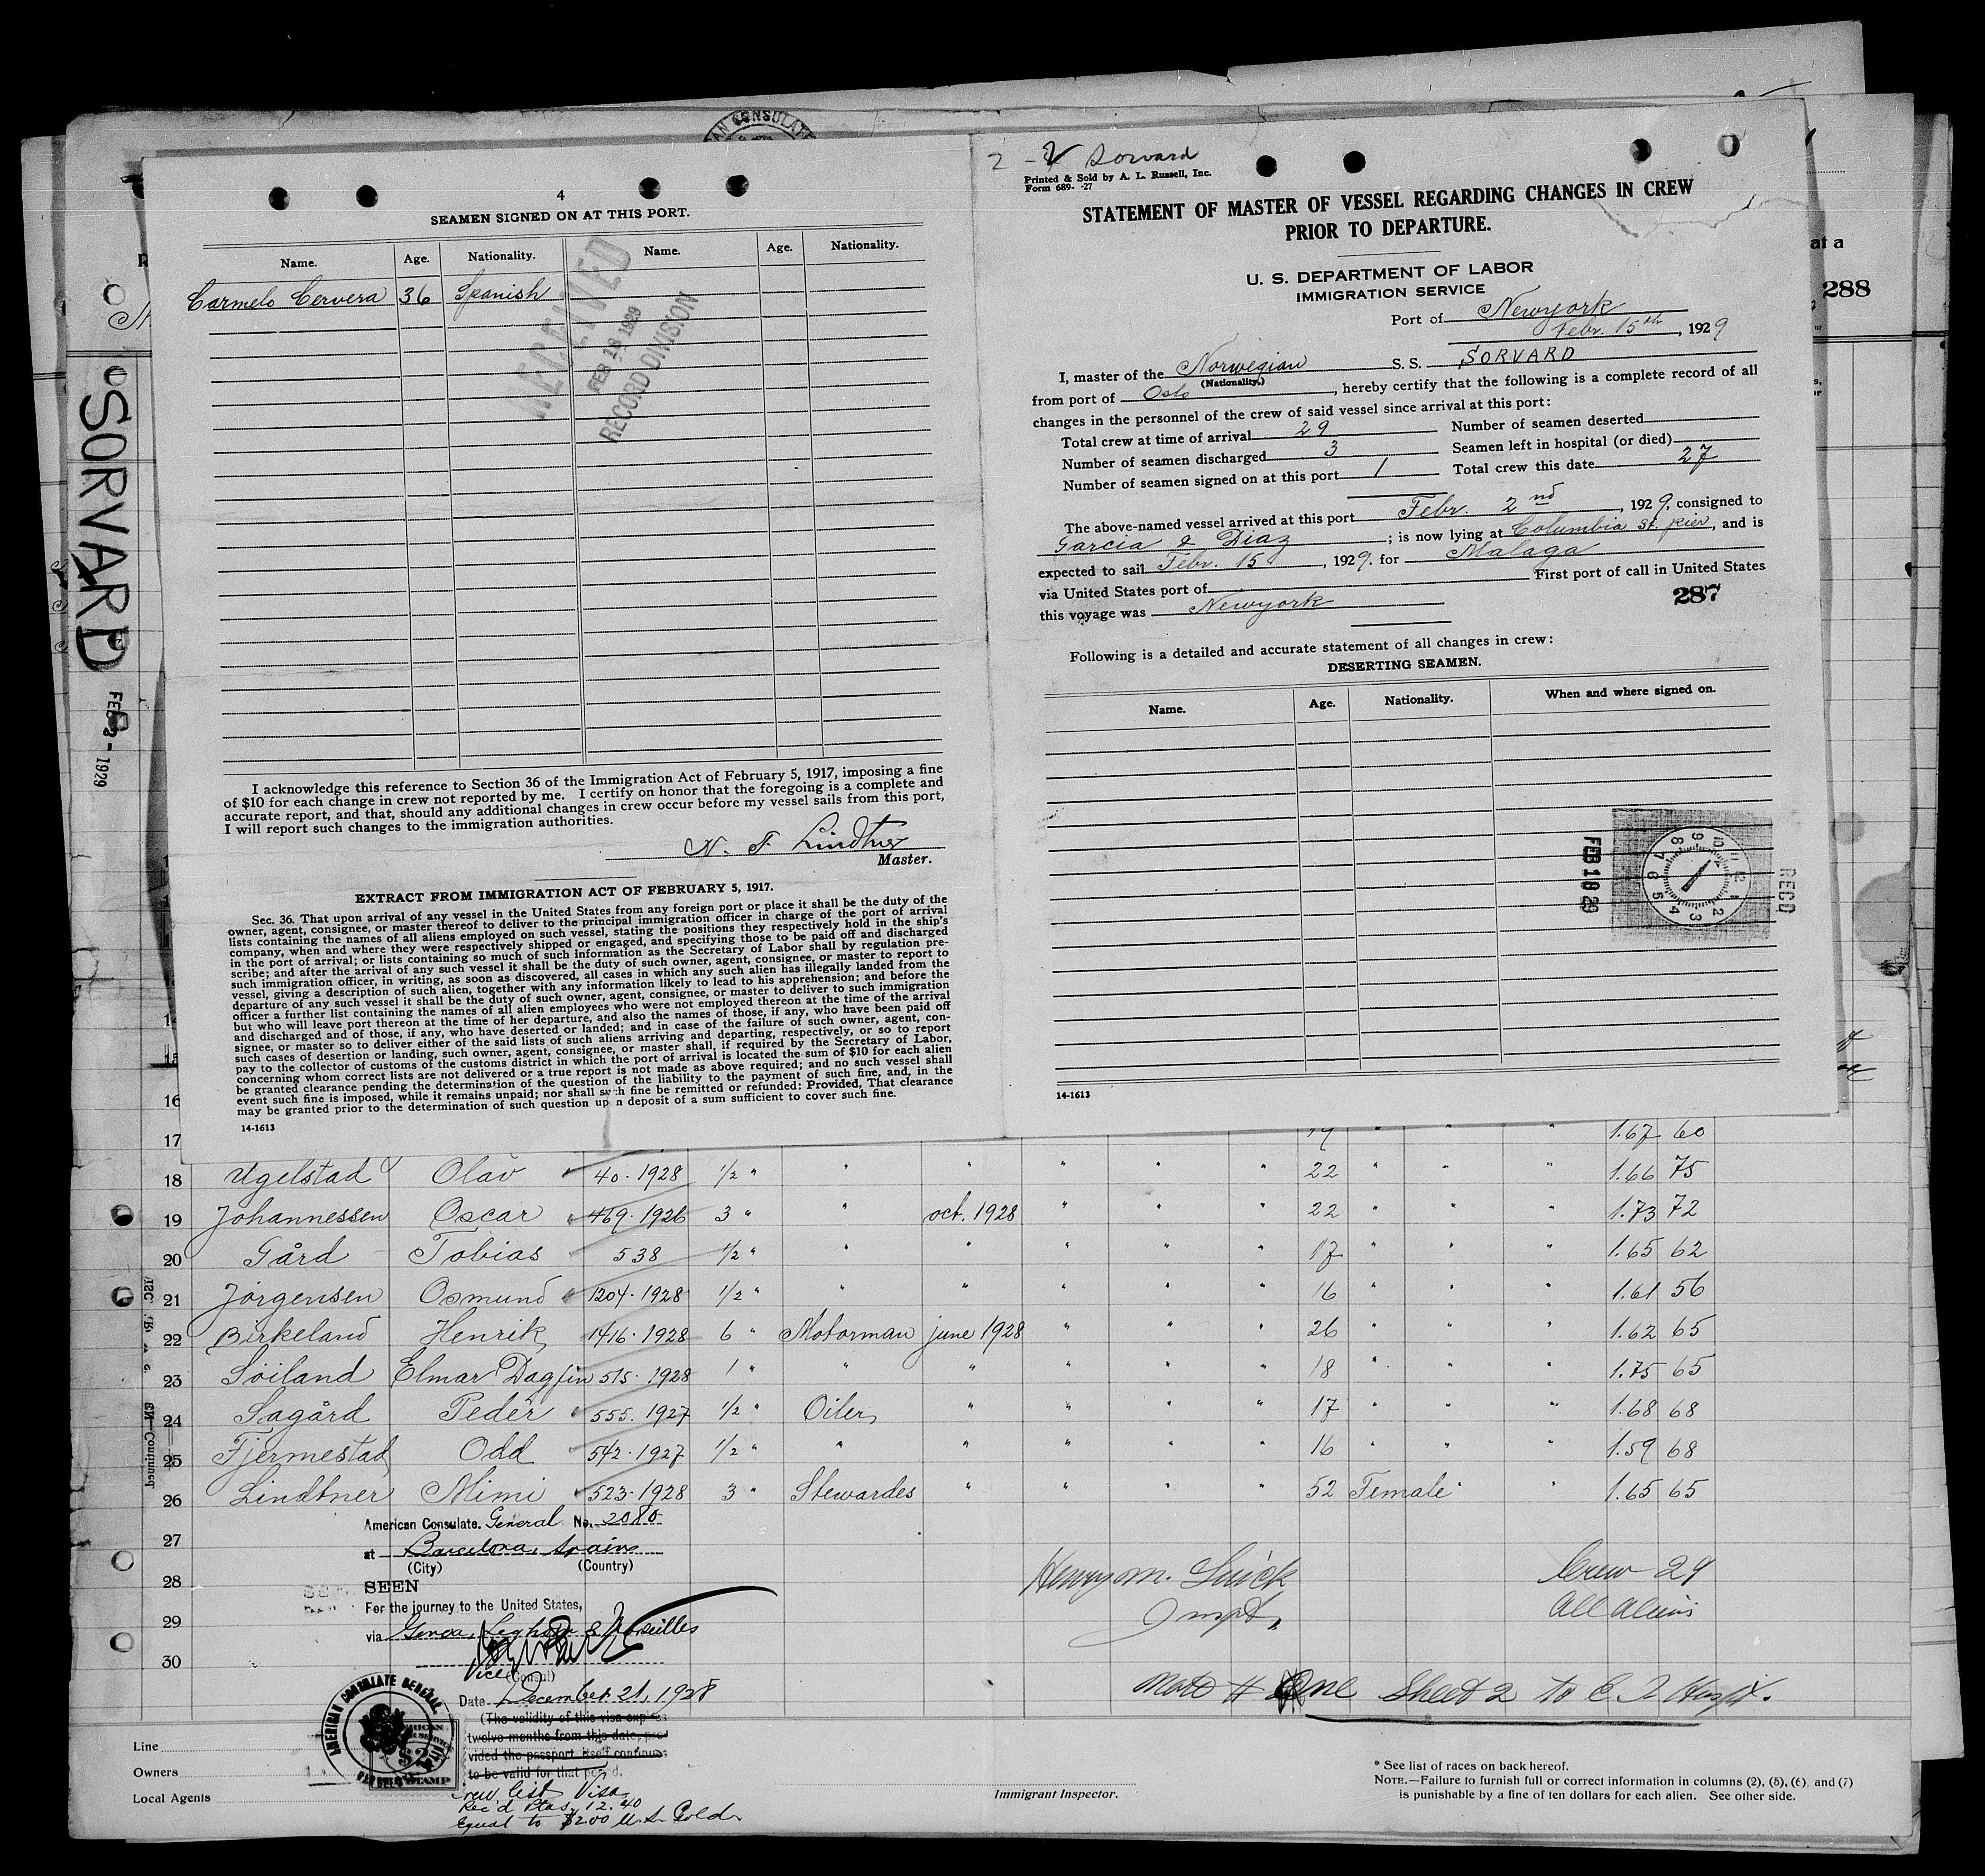 AN CONSULAT
4
SEAMEN SIGNED ON AT THIS PORT.
Name. Age. Nationality. Name. Age. Nationality.
Carmelo Cervera 36 Spanish
RECEIVED
FEB 18 1929
RECORD DIVISION
I acknowledge this reference to Section 36 of the Immigration Act of February 5, 1917, imposing a fine
of $10 for each change in crew not reported by me. I certify on honor that the foregoing is a complete and
accurate report, and that, should any additional changes in crew occur before my vessel sails from this port,
I will report such changes to the immigration authorities.
N. F. Lindtner
Master.
EXTRACT FROM IMMIGRATION ACT OF FEBRUARY 5, 1917.
Sec. 36. That upon arrival of any vessel in the United States from any foreign port or place it shall be the duty of the
owner, agent, consignee, or master thereof to deliver to the principal immigration officer in charge of the port of arrival
lists containing the names of all aliens employed on such vessel, stating the positions they respectively hold in the ship's
company, when and where they were respectively shipped or engaged, and specifying those to be paid off and discharged
in the port of arrival; or lists containing so much of such information as the Secretary of Labor shall by regulation pre-
scribe; and after the arrival of any such vessel it shall be the duty of such owner, agent, consignee, or master to report to
such immigration officer, in writing, as soon as discovered, all cases in which any such alien has illegally landed from the
vessel, giving a description of such alien, together with any information likely to lead to his apprehension; and before the
departure of any such vessel it shall be the duty of such owner, agent, consignee, or master to deliver to such immigration
officer a further list containing the names of all alien employees who were not employed thereon at the time of the arrival
but who will leave port thereon at the time of her departure, and also the names of those, if any, who have been paid off
and discharged and of those, if any, who have deserted or landed; and in case of the failure of such owner, agent, con-
signee, or master so to deliver either of the said lists of such aliens arriving and departing, respectively, or so to report
such cases of desertion or landing, such owner, agent, consignee, or master shall, if required by the Secretary of Labor,
pay to the collector of customs of the customs district in which the port of arrival is located the sum of $10 for each alien
concerning whom correct lists are not delivered or a true report is not made as above required; and no such vessel shall
be granted clearance pending the determination of the question of the liability to the payment of such fine, and, in the
event such fine is imposed, while it remains unpaid; nor shall such fine be remitted or refunded: Provided, That clearance
may be granted prior to the determination of such question upon deposit of a sum sufficient to cover such fine.
14-1613
2 - 2 Sorvard
Printed & Sold by A. L. Russell, Inc.
Form 689- -27
STATEMENT OF MASTER OF VESSEL REGARDING CHANGES IN CREW
PRIOR TO DEPARTURE.
U. S. DEPARTMENT OF LABOR
IMMIGRATION SERVICE
Port of Newyork
Febr. 15th, 1929
I, master of the Norwegian S. S. SORVARD
(Nationality.)
from port of Oslo, hereby certify that the following is a complete record of all
changes in the personnel of the crew of said vessel since arrival at this port:
Total crew at time of arrival 29 Number of seamen deserted
Number of seamen discharged 3 Seamen left in hospital (or died)
Number of seamen signed on at this port 1 Total crew this date 27
The above-named vessel arrived at this port Febr. 2nd, 1929, consigned to
Garcia & Diaz; is now lying at Columbia St. pier, and is
expected to sail Febr. 15, 1929. for Malaga
via United States port of First port of call in United States
this voyage was Newyork
287
Following is a detailed and accurate statement of all changes in crew:
DESERTING SEAMEN.
Name. Age. Nationality. When and where signed on.
FEB 18 29
RECD
14-1613
at a
288
SORVARD
FEB 2 - 1929
16
17 19 " " " 1.67 60
18 Ugelstad Olav 40. 1928 1/2 " " " " " " 22 " " " 1.66 75
19 Johannessen Oscar 469. 1926 3 " " oct. 1928 " " " 22 " " " 1.73 72
20 Gård Tobias 538 1/2 " " " " " " 17 " " " 1.65 62
21 Jörgensen Osmund 1204. 1928 1/2 " " " " " " 16 " " " 1.61 56
22 Birkeland Henrik 1416. 1928 6 " Motorman june 1928 " " " 26 " " " 1.62 65
23 Söiland Elmar Dagfin 515. 1928 1 " " " " " " 18 " " " 1.75 65
24 Sagård Peder 555. 1927 1/2 " Oiler " " " " 17 " " " 1.68 68
25 Fjermestad Odd 542. 1927 1/2 " " " " " " 16 " " " 1.59 68
26 Lindtner Mimi 523. 1928 3 " Stewardes " " " " 52 Female " " 1.65 65
27
28
29
30
American Consulate General No. 2080
at Barcelona, Spain
(City) (Country)
SEEN
For the journey to the United States,
via Genoa, Leghorn & Marseilles
Vice (Consul)
Date December 21, 1928
(The validity of this visa expires
twelve months from this date, pro-
vided the passport itself continues
to be valid for that period.
Crew list Visa
Rec'd Ptas. 12.40
Equal to $2.00 U.S. Gold.
AMERICAN CONSULATE GENERAL
$2
Henry M.
Inspt.
Crew 29
All aliens
Sheet 2 to
Line
Owners
Local Agents
Immigrant Inspector.
* See list of races on back hereof.
NOTE.—Failure to furnish full or correct information in columns (2), (5), (6), and (7)
is punishable by a fine of ten dollars for each alien. See other side.